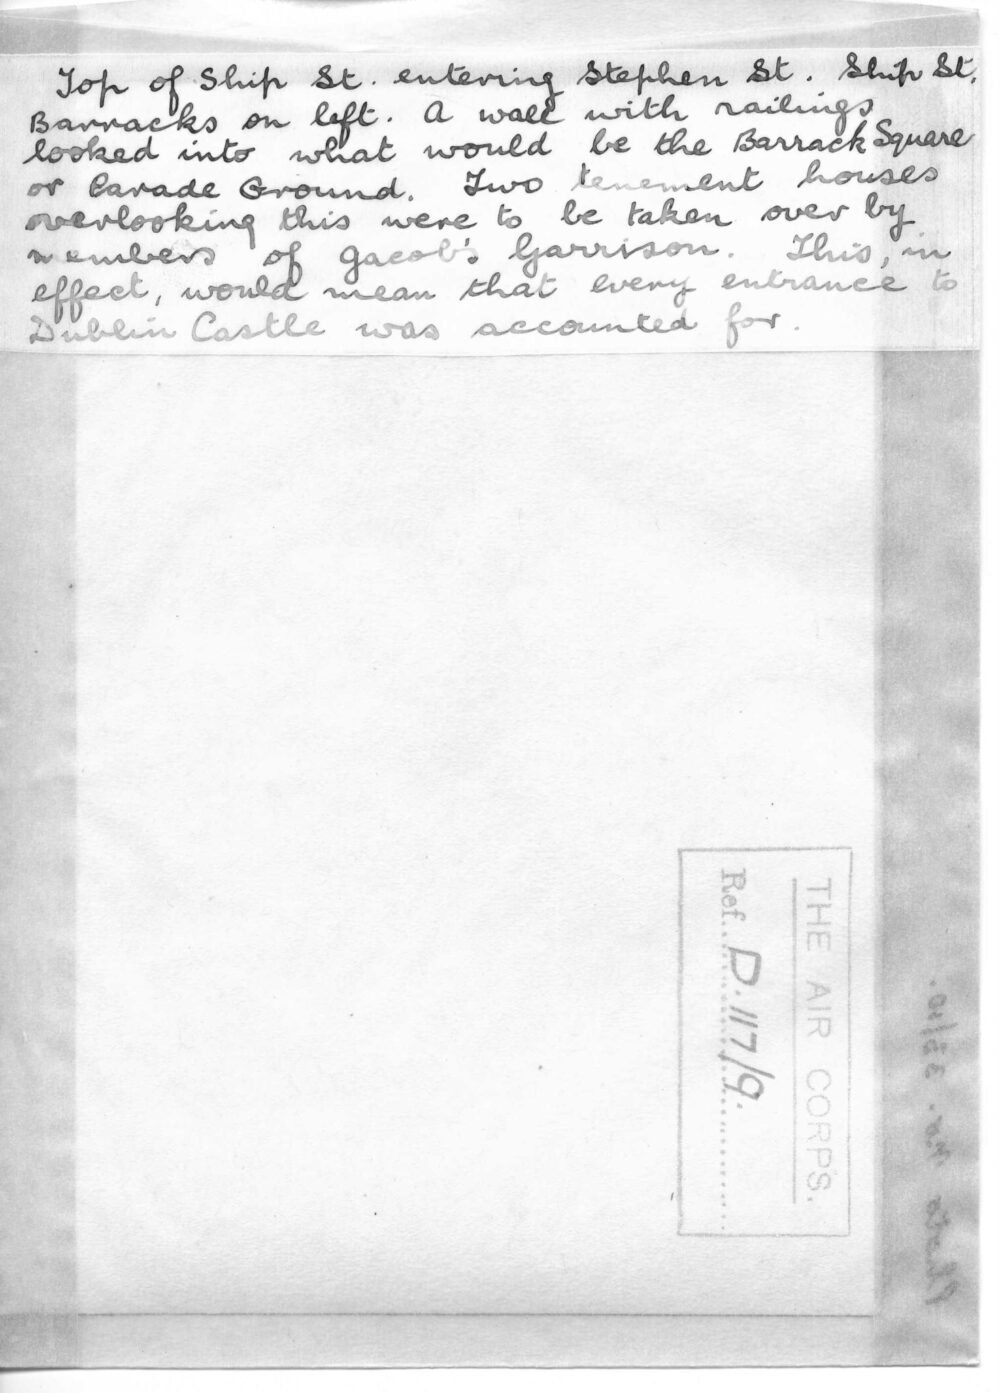 Top of Ship St. entering Stephen St. Ship St.
Barracks on left. A wall with railings
looked into what would be the Barrack Square
or Parade Ground. Two tenement houses
overlooking this were to be taken over by
members of Jacob's Garrison. This, in
effect, would mean that every entrance to
Dublin Castle was accounted for.
THE AIR CORPS.
Ref. D.117/9.
Photo No. 35/10.